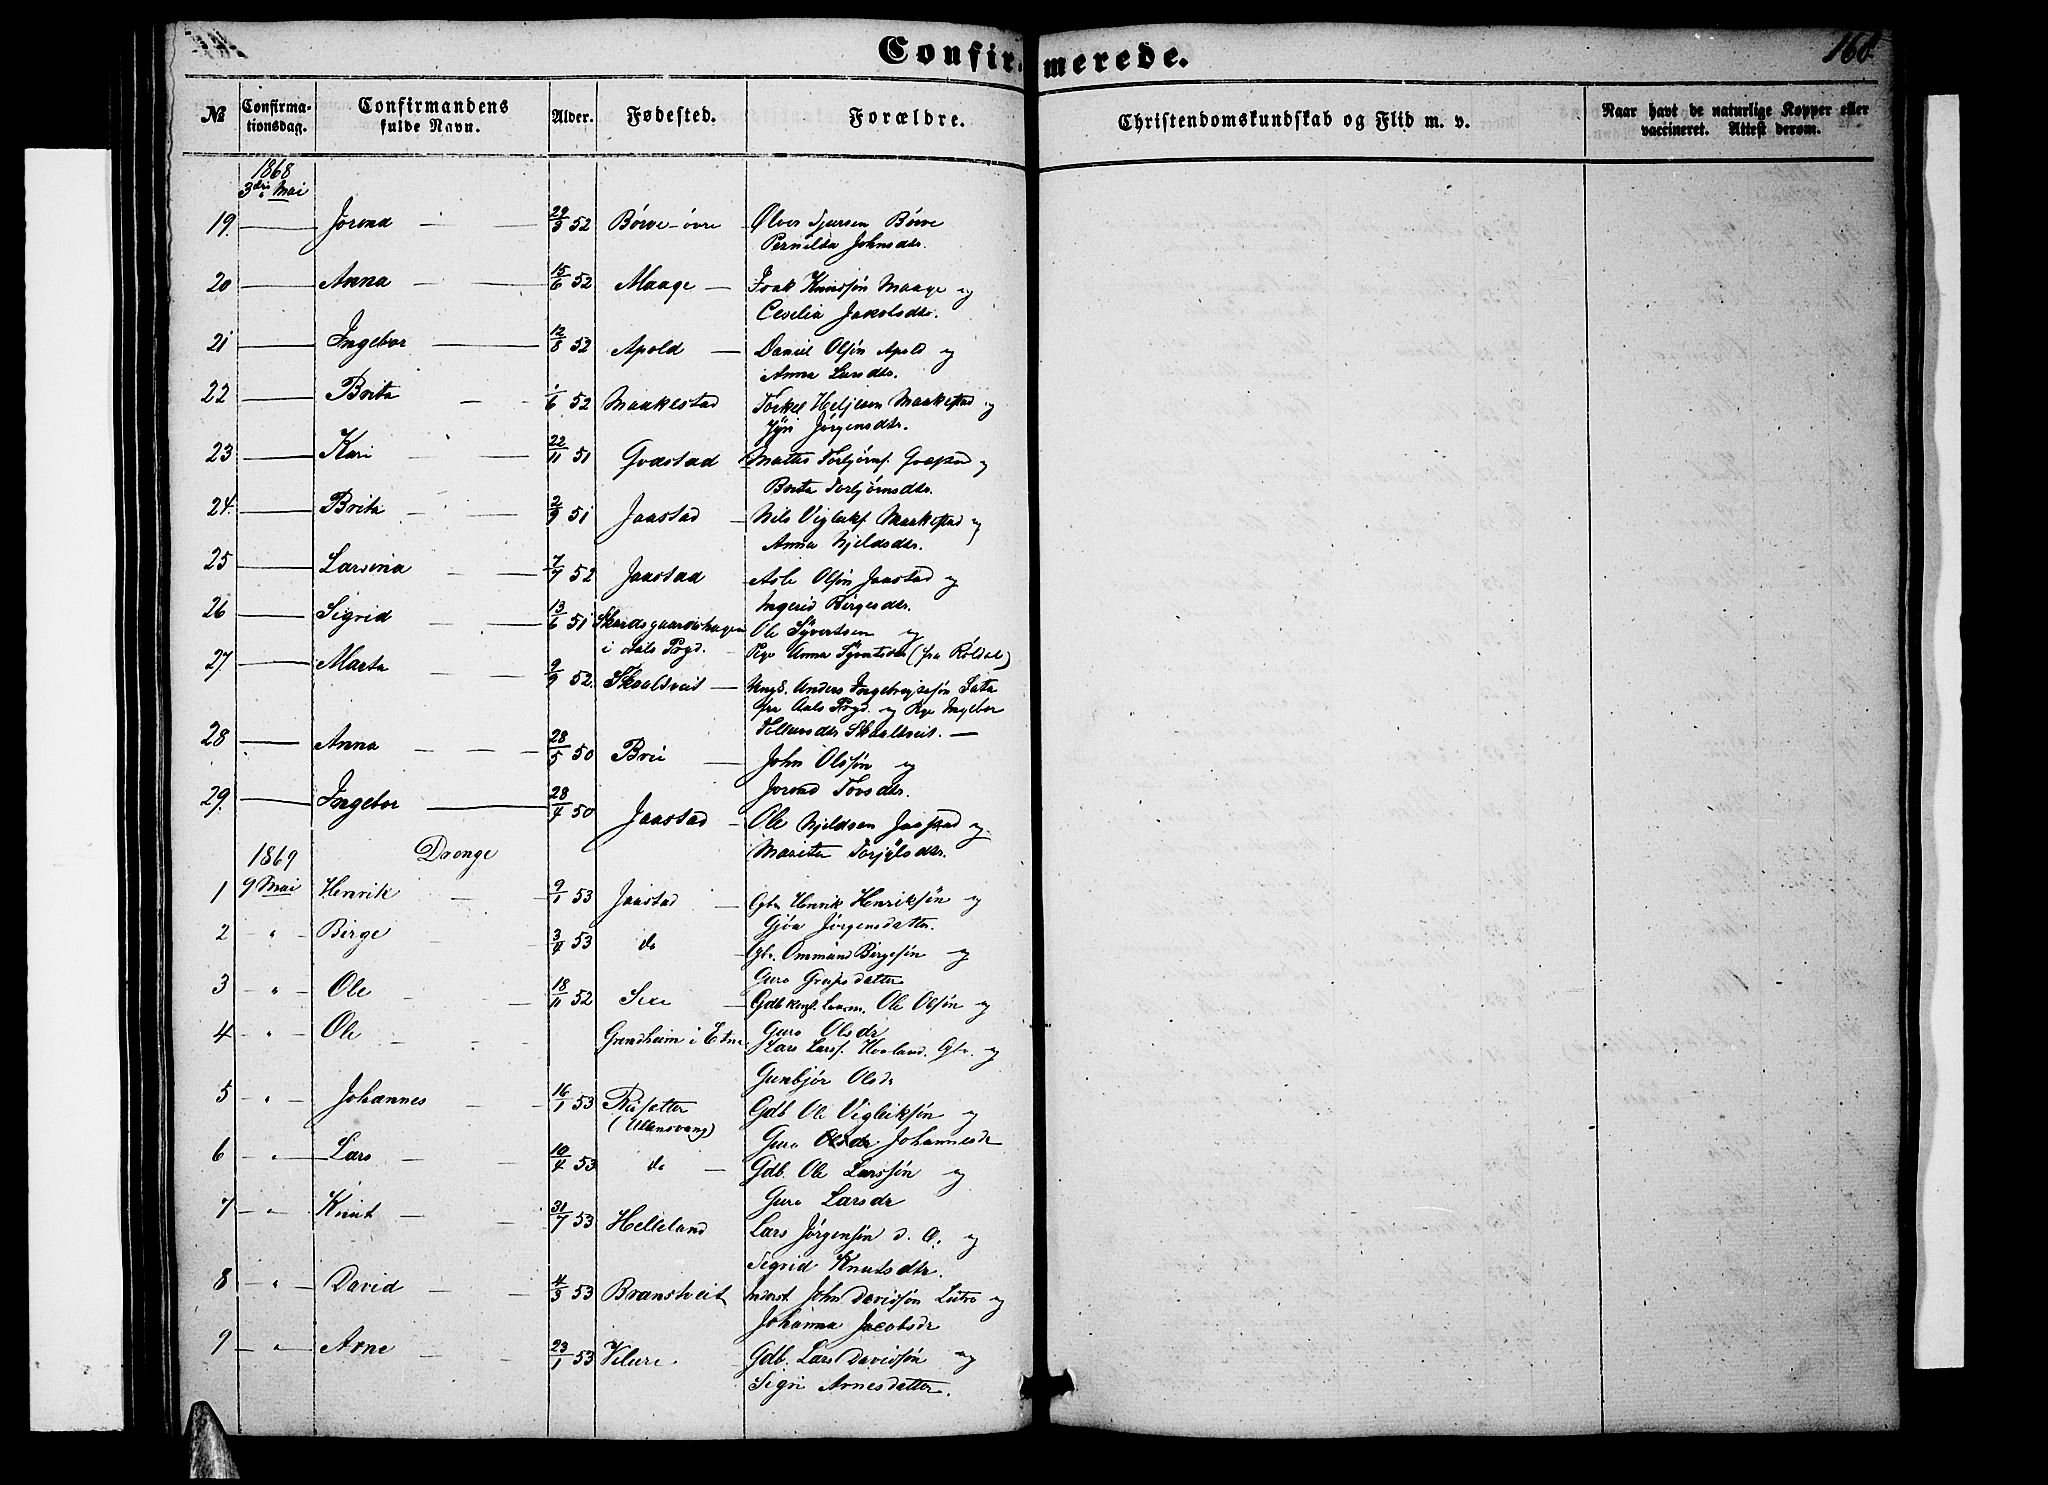 Confirmerede.
168
№
Confirma-
tionsdag.
Confirmandens
fulde Navn.
Alder.
Fødested.
Forældre.
Christendomskundskab og Flid m. v.
Naar havt de naturlige Kopper eller
vaccineret. Attest derom.
1868
3die Mai
19. Jorond 29/3 52 Børve øvre Ølver Tjersen Børve
Pernilda Johnsdtr.
20 Anna 15/6 52 Maage Isak Knudsøn Maage og
Cesilia Jakobsdtr.
21 Ingebor 12/8 52 Apold Daniel Olsøn Apold og
Anna Larsdtr.
22 Brita 1/6 52 Maakestad Torkel Heljesen Maakestad og
Jørgensdtr.
23 Kari 22/11 51 Godstad Mattis Torbjørns. og
Brita Torbjørnsdtr.
24. Brita 2/9 51 Jaastad Nils Vigleiks. Maakestad og
Anna Kjeldsdtr.
25 Larsina 7/7 52 Jaastad Asle Olsøn Jaastad og
Ingerid Birgesdtr.
26 Sigrid 13/6 51 Skardsgaardshagen Ole Syvertsen og
i Aals Prgd. Pige Anna (fra Røldal)
27 Marta 9/9 52. Skaaltveit Ungk. Anders Ingebrigtsøn Sata
fra Aals Prgd. og Pige Ingebor
Skaaltveit.
28 Anna 28/5 50 Brei John Olssøn og
Jorond Tovsdtr.
29. Ingebor 28/4 50 Jaastad Ole Kjeldsen Jaastad og
Marita Torjylsdtr.
1869 Drenge
1 9 Mai Henrik 9/1 53 Jaastad Gbr Henrik Henriksøn og
Gjøa Jørgensdatter.
2 " Birge 3/4 53 do Gbr. Ommund Birgesøn og
Guro Greipsdatter
3 " Ole 18/11 52 Sexe Gdb Ole Olsøn og
Guro Olsdr
4 " Ole Grindheim i Etne Lars Larss. Hovland. Gbr. og
Gunbjør Olsdr
5 " Johannes 16/1 53 Reisetter Gdb Ole Vigleiksøn og
(Ullensvang) Guro Olsdr. Johannesdr
6 " Lars 10/4 53 do Gdb. Ole Larssøn og
Guro Larsdr
7 " Knut 31/7 53 Helleland Lars Jørgensøn d. A. og
Sigrid Knutsdtr.
8 " David 4/3 53 Branstveit Inderst John Davidsøn Lutro og
Johanna Jacobsdr
9 " Arne 23/1 53 Vilure Gdb. Lars Davidsøn og
Sigri Arnesdatter.